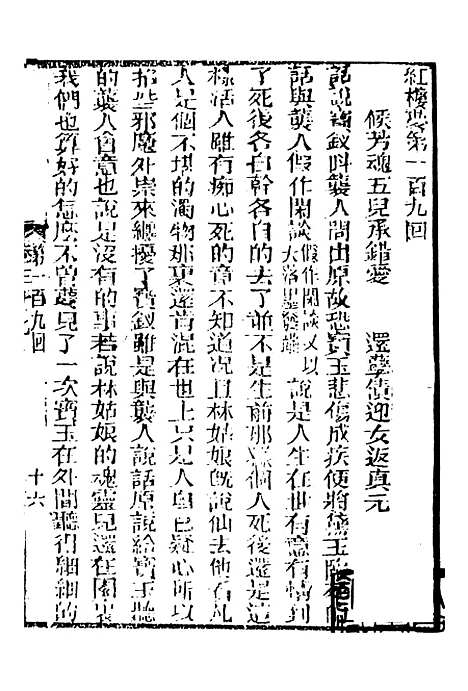 紅樓夢第一百九回
候芳魂五兒承錯愛　還孽債迎女返真元
話說寶釵叫襲人問出原故恐寶玉悲傷成疾便將黛玉臨死的
話與襲人假作閒談假作閒談又以大落墨發論說是人生在世有意有情到
了死後各自幹各自的去了並不是生前那樣個人死後還是這
樣活人雖有痴心死的竟不知道況且林姑娘既說仙去他看凡
人是個不堪的濁物那裏還肯混在世上只是人自己疑心所以
招些邪魔外祟來纏擾了寶釵雖是與襲人說話原說給寶玉聽
的襲人會意也說是沒有的事若說林姑娘的魂靈兒還在園裏
我們也算好的怎麼不曾夢見了一次寶玉在外間聽得細細的
第一百九回
十六